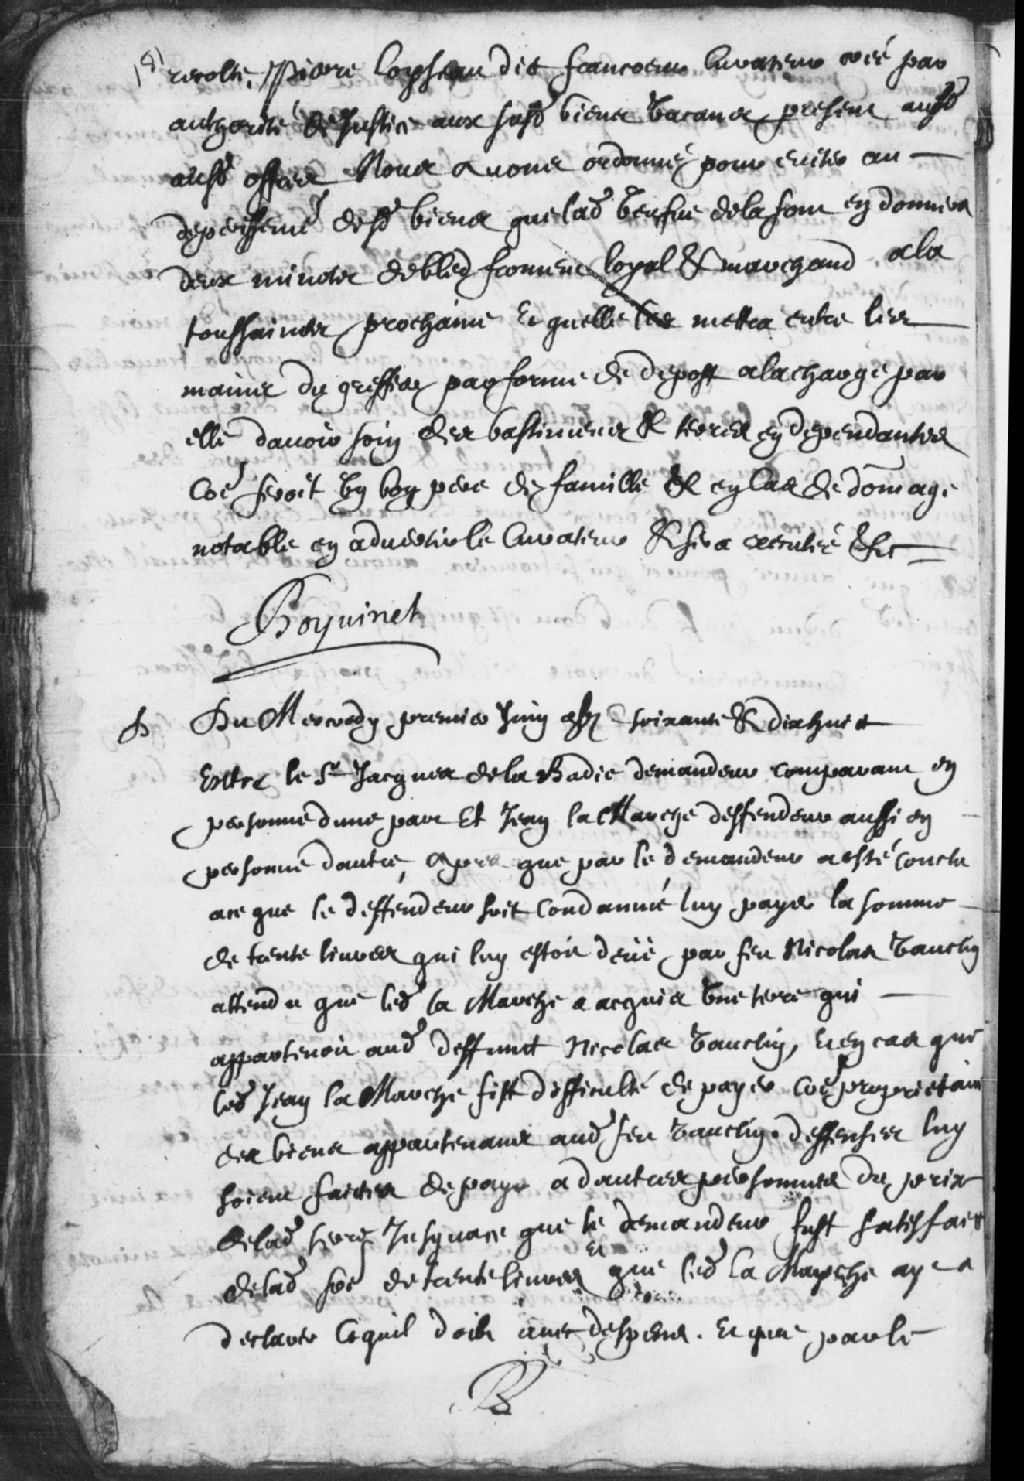 181
recolte, Pierre loyseau dit francoeur Curateur creé par
authorité de Justice aux susd biens vacans present ausd
ausd offres Nous avons ordonné pour eviter au
deperissemt desd biens que lad veufve de la font en donnera
deux minots de bled froment loyal & marchand a la
toussaints prochaine Et quelle les mettra entre les
mains du greffier par forme de depost a la charge par
elle davoir soin des bastimens & terres en dependantes
Coe feroit un bon pere de famille & en Cas de domage
notable en advertir le Curateur & sera executé &c
Boyvinet
Du Mercredy premier Juin soixante & dixhuit
Entre le Sr Jacques de la Badie demandeur comparant en
personne dune part Et Jean la Marche deffendeur aussi en
personne dautre, Apres que par le demandeur a esté conclu
a ce que le deffendeur soit Condamné luy payer la somme
de trente livres qui luy estoit deüe par feu Nicolas
attendu que led la Marche a acquis une terre qui
appartenoit aud deffunct Nicolas Et en cas que
led Jean la Marche fist difficulté de payer Coe proprietaire
des biens appartenans aud feu deffenses luy
soient faictes de payer a dautres personnes du prix
de lad terre Jusquace que le demandeur fust satisfaict
de lad soe de trente livres Et que led la Marche aye a
declarer Ce quil doibt avec despens. Et que par le
B